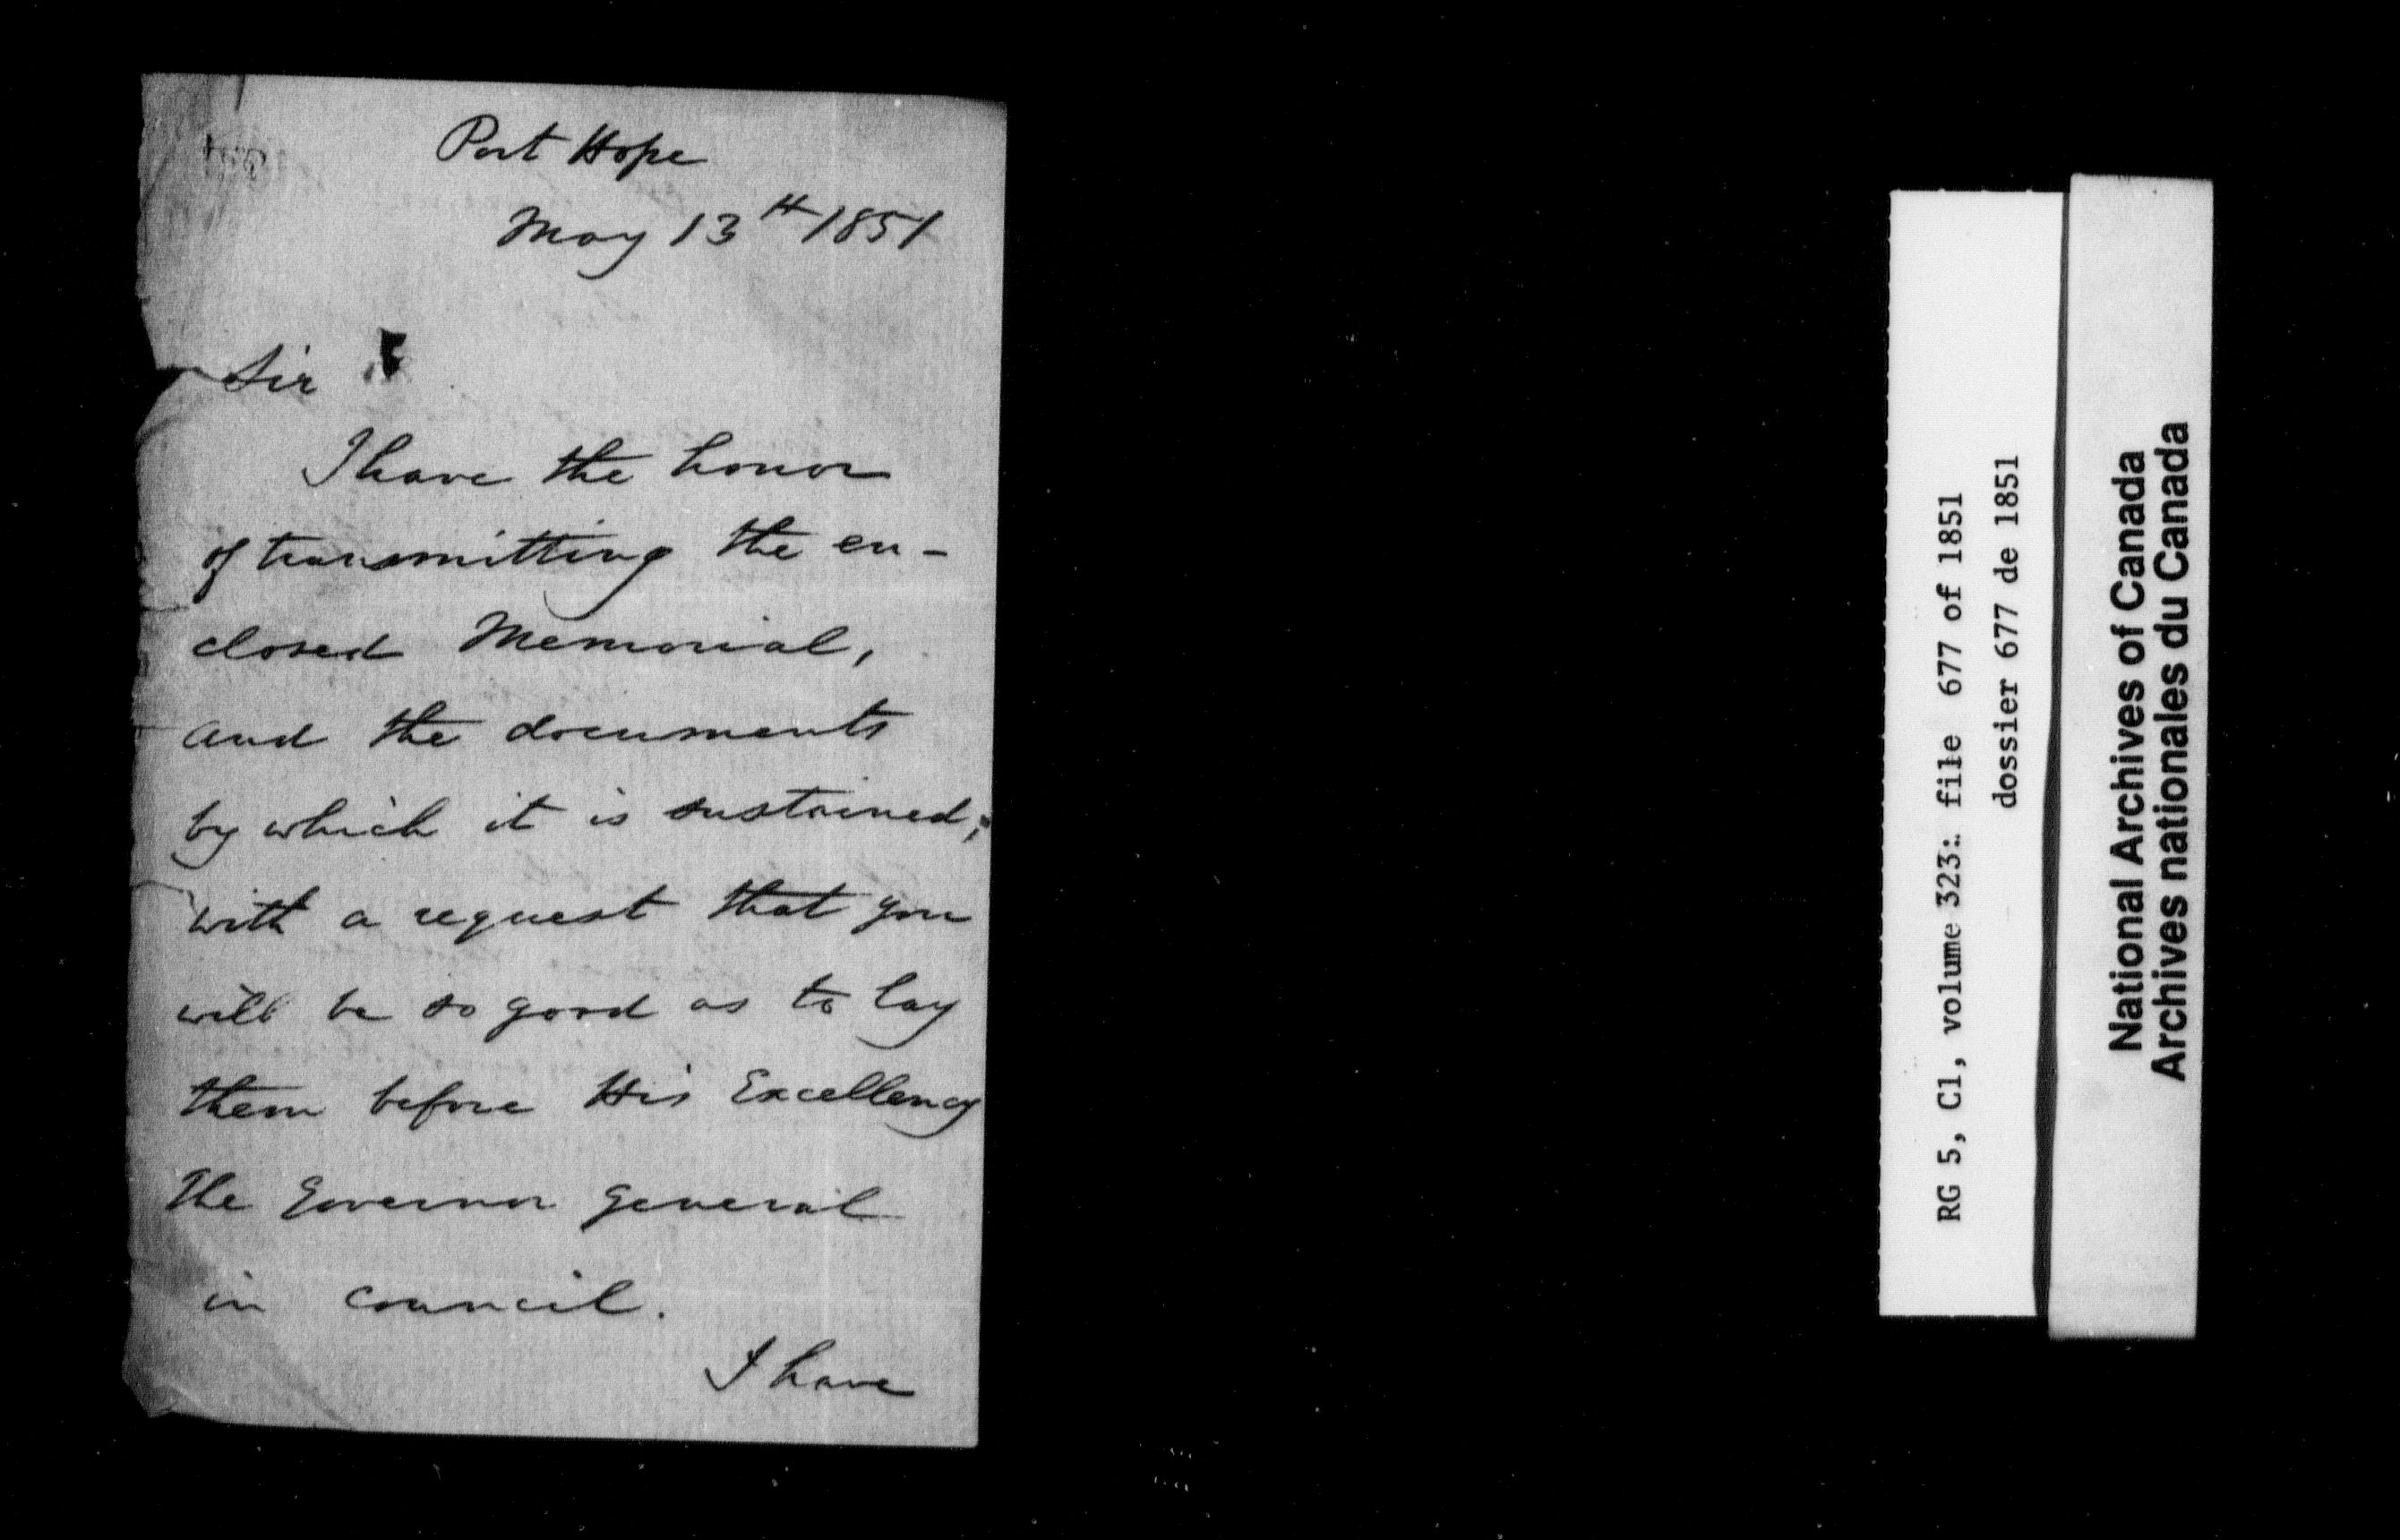 Port Hope
May 13th 1851
Sir
I have the honor
of transmitting the en-
closed Memorial,
and the documents
by which it is sustained;
with a request that you
will be so good as to lay
them before His Excellency
the Governor General
in council.
I have
RG 5, C1, volume 323: file 677 of 1851
dossier 677 de 1851
National Archives of Canada
Archives nationales du Canada